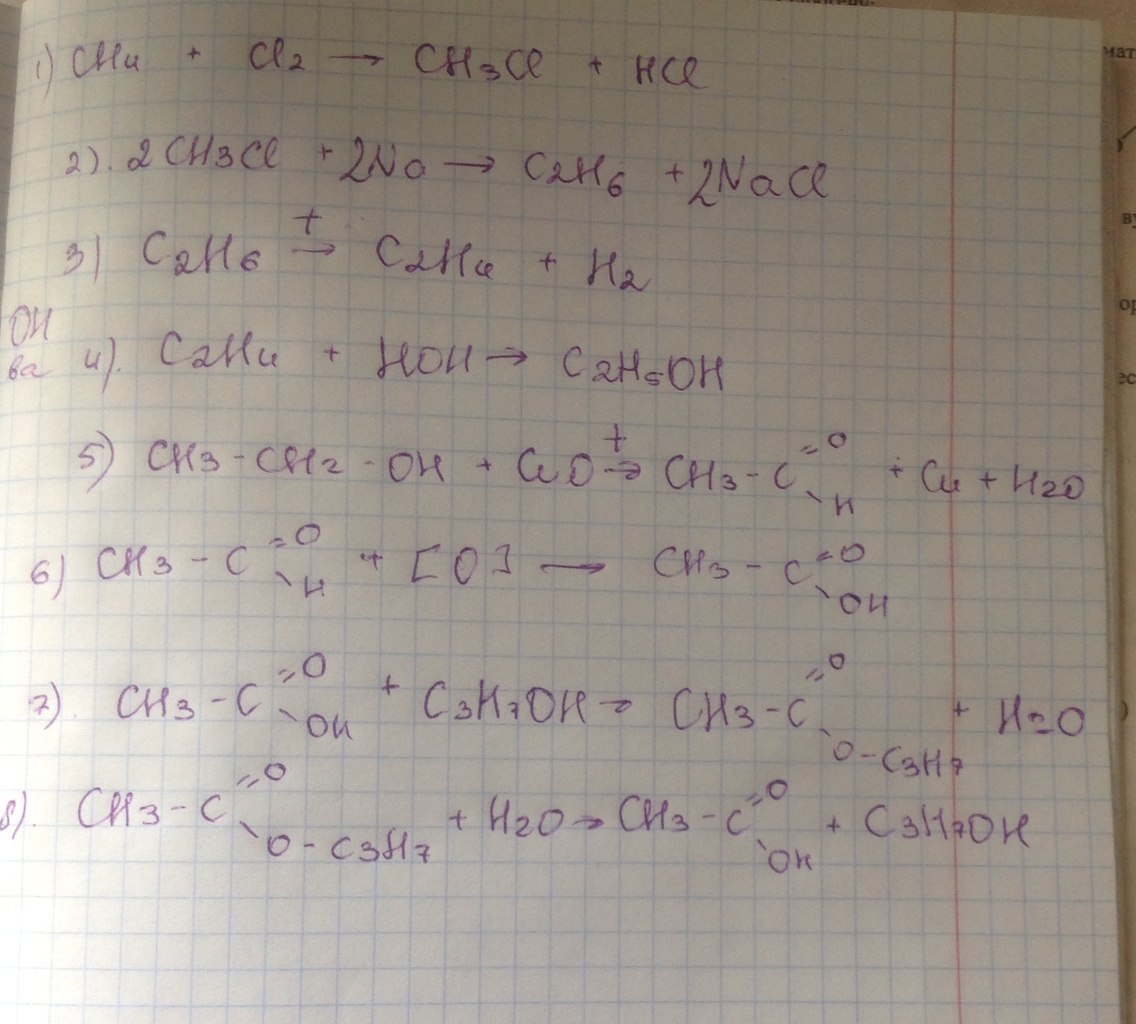 1) CH4 + Cl2 → CH3Cl + HCl
2). 2CH3Cl + 2Na → C2H6 + 2NaCl
3) C2H6 t→ C2H4 + H2
OH
ва
4). C2H4 + HOH → C2H5OH
5) CH3-CH2-OH + CuO t→ CH3-C=O\H + Cu + H2O
6) CH3-C=O\H + [O] → CH3-C=O\OH
7). CH3-C=O\OH + C3H7OH → CH3-C=O\O-C3H7 + H2O
8). CH3-C=O\O-C3H7 + H2O → CH3-C=O\OH + C3H7OH
мат
ву
ор
ес